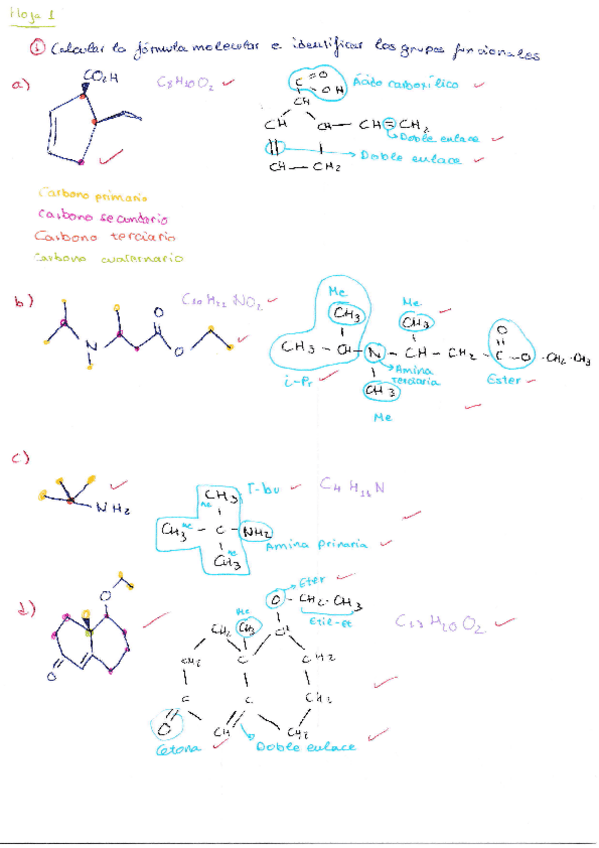 Hoja 1
① Calcular la fórmula molecular e identificar los grupos funcionales
a)
CO₂H
C₈H₁₀O₂
C=O
OH
Ácido carboxílico
CH
CH
CH — CH=CH₂
Doble enlace
Doble enlace
CH — CH₂
Carbono primario
Carbono secundario
Carbono terciario
Carbono cuaternario
b)
O
N
O
C₁₀H₂₂NO₂
Me
CH₃
Me
CH₃
O
CH₃ — CH — N — CH — CH₂ — C — O — CH₂-CH₃
Amina terciaria
i-Pr
Ester
CH₃
Me
c)
NH₂
CH₃
T-bu
C₄H₁₁N
Me
CH₃ — C — NH₂
Me
Me
Amina primaria
CH₃
d)
O
O
Eter
O — CH₂-CH₃
Etil-Et
C₁₃H₂₀O₂
Me
CH₂
CH₃
CH
CH₂
C
CH₂
C
C
CH₂
O
CH
CH₂
Cetona
Doble enlace